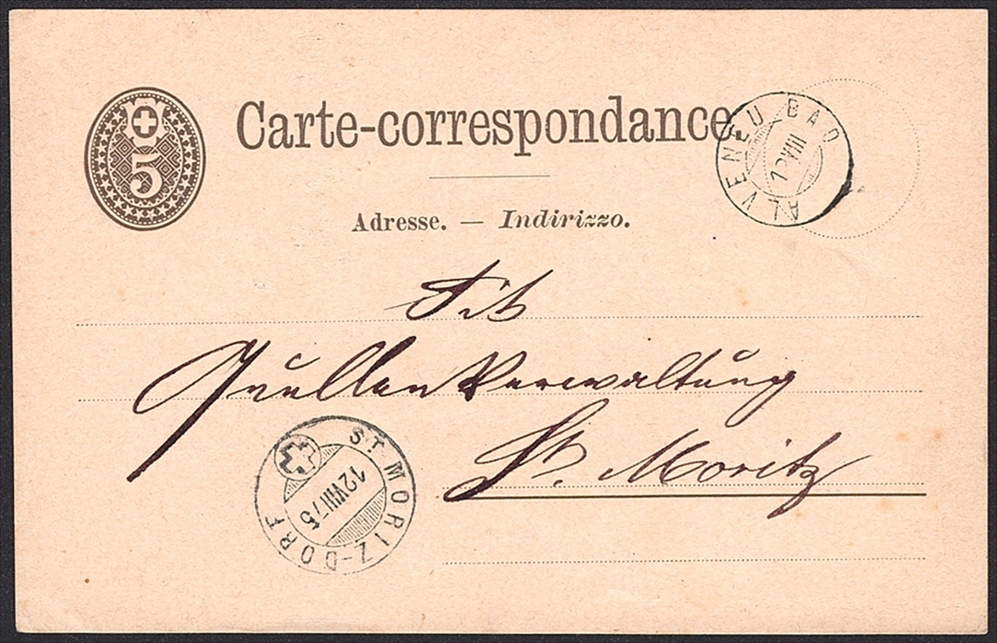 5
Carte-correspondance
ALVENEU BAD
VIII
Adresse. — Indirizzo.
Tit
Quellen Verwaltung
St. Moritz
ST MORIZ-DORF
12 VIII 75